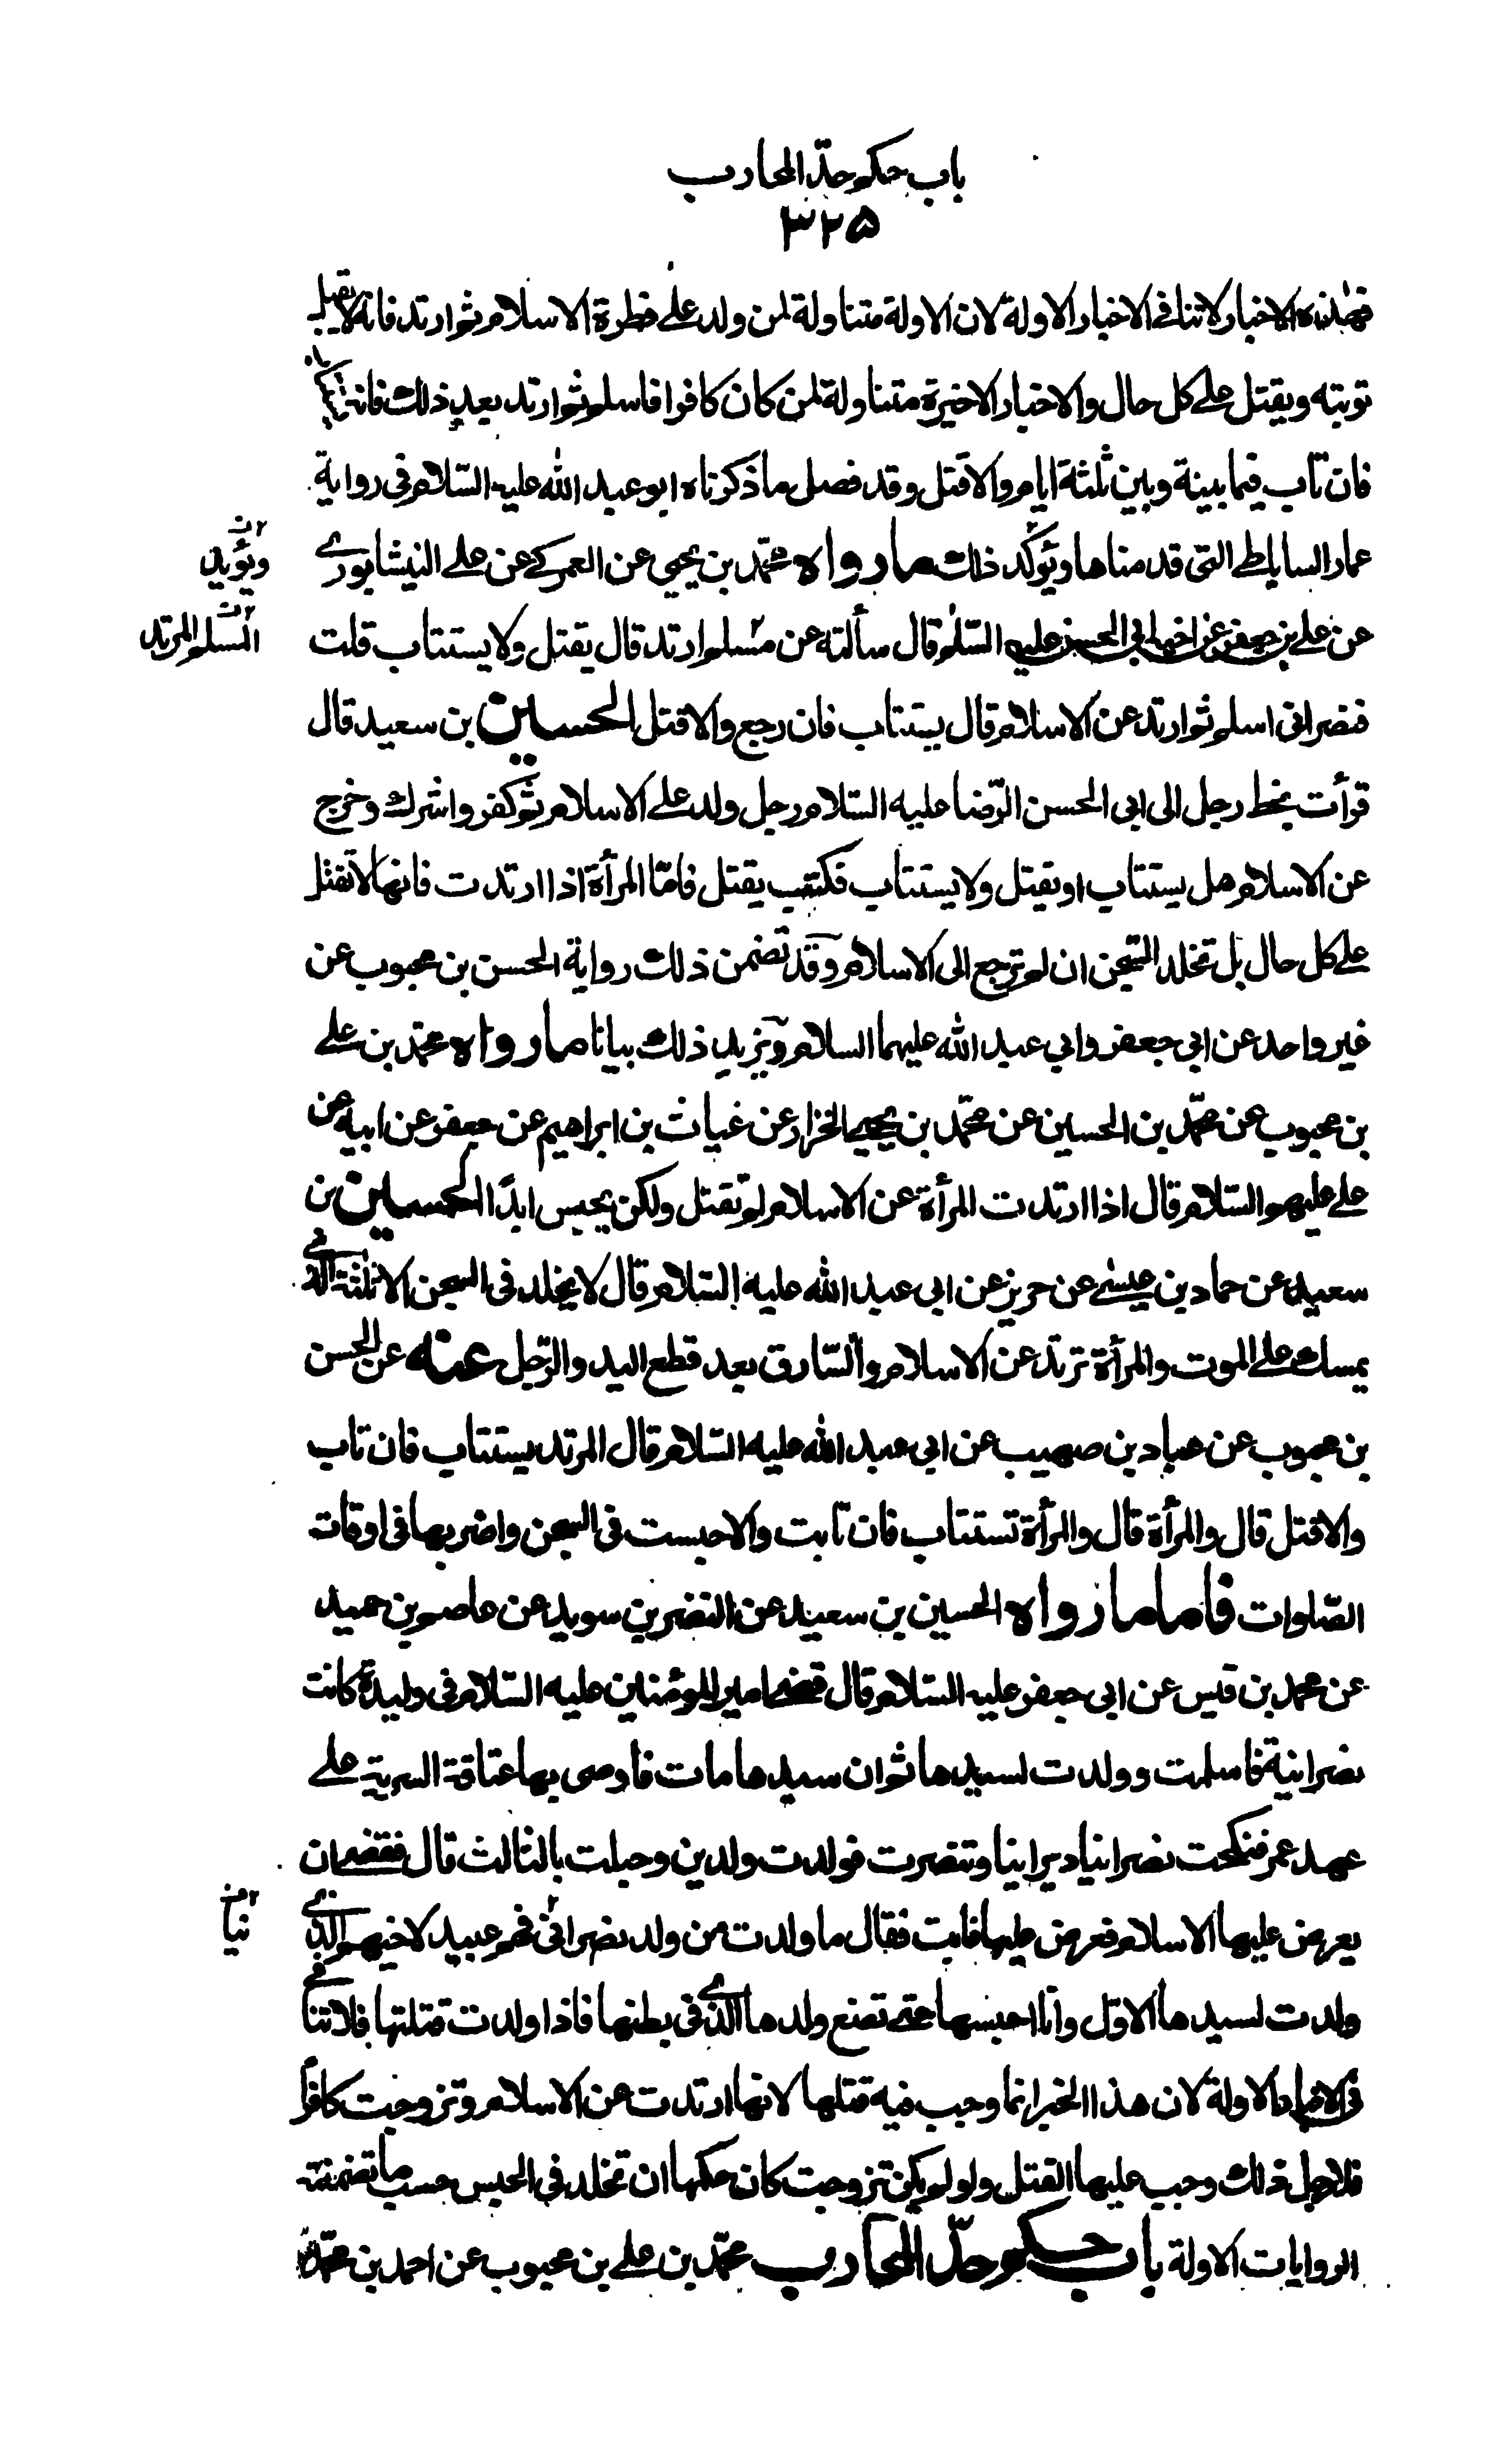 باب حكم حدّ المحارب
٣٢٥
فهذه الاخبار لا تنافي الاخبار الاولة لان الاولة متناولة لمن ولد على فطرة الاسلام ثم ارتد فانه لا يقبل
توبته ويقتل على كل حال والاخبار الاخيرة متناولة لمن كان كافرا فاسلم ثم ارتد بعد ذلك فانه
فان تاب فيما بينة وبين ثلثة ايام والا قتل وقد فصل ما ذكرناه ابو عبد الله عليه السّلام في رواية
عمار الساباطي التى قدمناها ويؤكد ذلك ما رواه محمّد بن يحيى عن العمركي عن علي النيشابوري
ويؤيد
عن علي بن جعفر عن اخيه ابي الحسن عليه السّلم قال سألته عن مسلم ارتد قال يقتل ولا يستتاب قلت
المسلم المرتد
فنصراني اسلم ثم ارتد عن الاسلام قال يستتاب فان رجع والا قتل الحسين بن سعيد قال
قرأت بخط رجل الى ابى الحسن الرّضا عليه السّلام رجل ولد على الاسلام ثم كفر واشرك وخرج
عن الاسلام هل يستتاب او يقتل ولا يستتاب فكتب يقتل فامّا المرأة اذا ارتدت فانها لا تقتل
على كل حال بل تخلد السّجن ان لم ترجع الى الاسلام وقد تضمن ذلك رواية الحسن بن محبوب عن
غير واحد عن ابي جعفر وابي عبد الله عليهما السلام ويزيد ذلك بيانا ما رواه محمّد بن علي
بن محبوب عن محمّد بن الحسين عن محمّد بن يحيى الخزاز عن غياث بن ابراهيم عن جعفر عن ابيه عن
علي عليهم السّلام قال اذا ارتدت المرأة عن الاسلام لم تقتل ولكن يحبس ابدًا الحسين بن
سعيد عن حماد بن عيسى عن حريز عن ابي عبد الله عليه السّلام قال لا يخلد في السجن الا ثلثة الذي
يمسك على الموت والمرأة ترتد عن الاسلام والسّارق بعد قطع اليد والرّجل عنه عن الحسن
بن محبوب عن عباد بن صهيب عن ابي عبد الله عليه السّلام قال المرتد يستتاب فان تاب
والا قتل قال والمرأة قال والمرأة تستتاب فان تابت والا حبست في السجن واضر بها في اوقات
الصّلوات فاما ما رواه الحسين بن سعيد عن النضر بن سويد عن عاصم بن حميد
عن محمد بن قيس عن ابي جعفر عليه السّلام قال قضى امير المؤمنين عليه السّلام في وليدة كانت
نصرانية فاسلمت وولدت لسيدها ثم ان سيدها مات فاوصى بها عتاقة السرية على
عهد عمر فنكحت نصرانيا ديرانيا وتنصرت فولدت ولدين وحبلت بالثالث قال فقضى ان
يعرض عليها الاسلام فعرض عليها فابت فقال ما ولدت من ولد نصراني فهم عبيد لاخيهم الذي
نيا
ولدت لسيدها الاوّل وانا احبسها حتى تضع ولدها الذي في بطنها فاذا ولدت قتلتها فلا تنافي
في الاخبار الاولة لان هذا الخبر انما وجب فيه قتلها لانها ارتدت عن الاسلام وتزوجت كافرًا
فلاجل ذلك وجب عليها القتل ولو لم يكن تزوجت كان حكمها ان تخلد في الحبس حسب ما تضمنته
الروايات الاولة باب حكم حدّ المحارب محمّد بن علي بن محبوب عن احمد بن محمّد